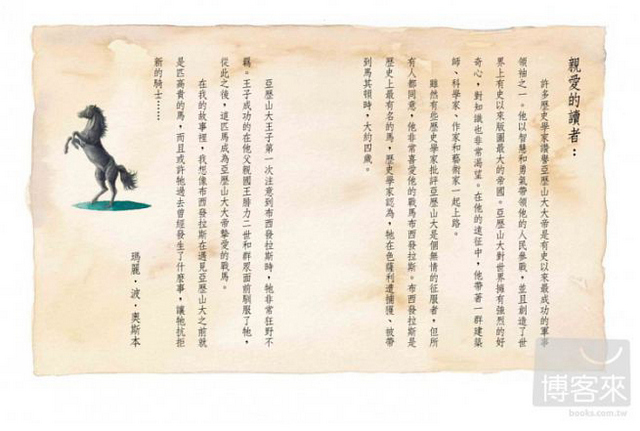 親愛的讀者：
許多歷史學家讚譽亞歷山大大帝是有史以來最成功的軍事
領袖之一。他以智慧和勇氣帶領他的人民參戰，並且創造了世
界上有史以來版圖最大的帝國。亞歷山大對世界擁有強烈的好
奇心，對知識也非常渴望。在他的遠征中，他帶著一群建築
師、科學家、作家和藝術家一起上路。
雖然有些歷史學家批評亞歷山大是個無情的征服者，但所
有人都同意，他非常喜愛他的戰馬布西發拉斯。布西發拉斯是
歷史上最有名的馬，歷史學家認為，牠在色薩利遭捕獲、被帶
到馬其頓時，大約四歲。
亞歷山大王子第一次注意到布西發拉斯時，牠非常狂野不
羈。王子成功的在他父親國王腓力二世和群眾面前馴服了牠，
從此之後，這匹馬成為亞歷山大大帝摯愛的戰馬。
在我的故事裡，我想像布西發拉斯在遇見亞歷山大之前就
是匹高貴的馬，而且或許牠過去曾經發生了什麼事，讓牠抗拒
新的騎士……
瑪麗·波·奧斯本
博客來
books.com.tw